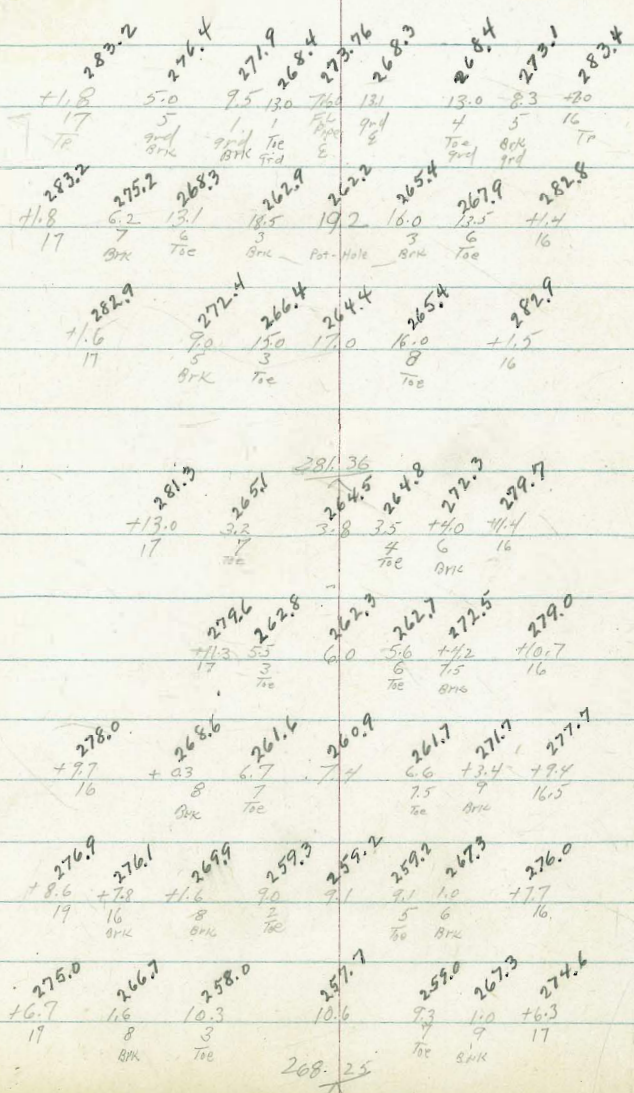 283.2 276.4 271.9 268.4 273.76 268.3 268.4 273.1 283.4
+1.8 5.0 9.5 13.0 7.60 13.1 13.0 8.3 +2.0
17 5 1 1 F.L. grd 4 5 16
Tp grd Brk grd Brk Toe grd Pipe ℄ ℄ Toe grd Brk grd Tp
283.2 275.2 268.3 262.9 262.2 265.4 267.9 282.8
+1.8 6.2 13.1 18.5 19.2 16.0 13.5 +1.4
17 7 6 3 3 6 16
Brk Toe Brk Pot-Hole Brk Toe
282.9 272.4 266.4 264.4 265.4 282.9
+1.6 9.0 15.0 17.0 16.0 +1.5
17 5 3 8 16
Brk Toe Toe
281.36
281.3 265.1 264.5 264.8 272.3 279.7
+13.0 3.2 3.8 3.5 +4.0 +11.4
17 7 4 6 16
Toe Toe Brk
279.6 262.8 262.3 262.7 272.5 279.0
+11.3 5.5 6.0 5.6 +4.2 +10.7
17 3 6 7.5 16
Toe Toe Brk
278.0 268.6 261.6 260.9 261.7 271.7 277.7
+9.7 +0.3 6.7 7.4 6.6 +3.4 +9.4
16 8 7 7.5 9 16.5
Brk Toe Toe Brk
276.9 276.1 269.9 259.3 259.2 259.2 267.3 276.0
+8.6 +7.8 +1.6 9.0 9.1 9.1 1.0 +7.7
19 16 8 2 5 6 16
Brk Brk Toe Toe Brk
275.0 266.7 258.0 257.7 259.0 267.3 274.6
+6.7 1.6 10.3 10.6 9.3 1.0 +6.3
19 8 3 7 9 17
Brk Toe Toe Brk
268.25